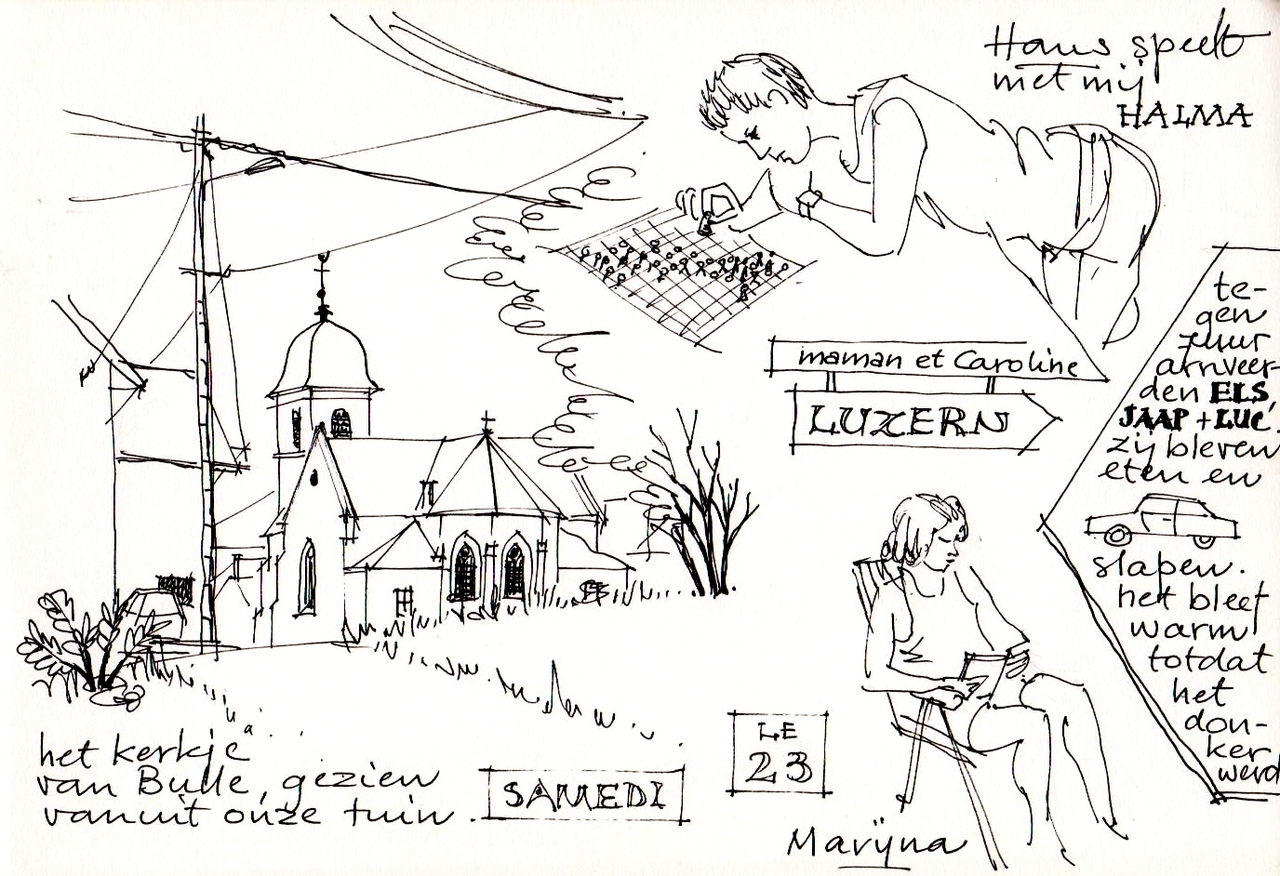 Hans speelt
met mij
HALMA
te-
gen
7 uur
arriveer-
den ELS,
JAAP + LUC.
zij bleven
eten en
slapen.
het bleef
warm
totdat
het
don-
ker
werd
maman et Caroline
LUZERN
het kerkje
van Bulle, gezien
vanuit onze tuin.
SAMEDI
LE
23
Marijna